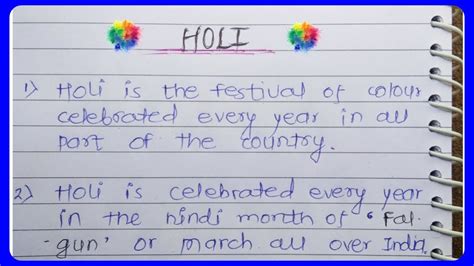 HOLI
1) Holi is the festival of colour
celebrated every year in all
part of the country.
2) Holi is celebrated every year
in the hindi month of ‘Fal-
-gun’ or march all over India.